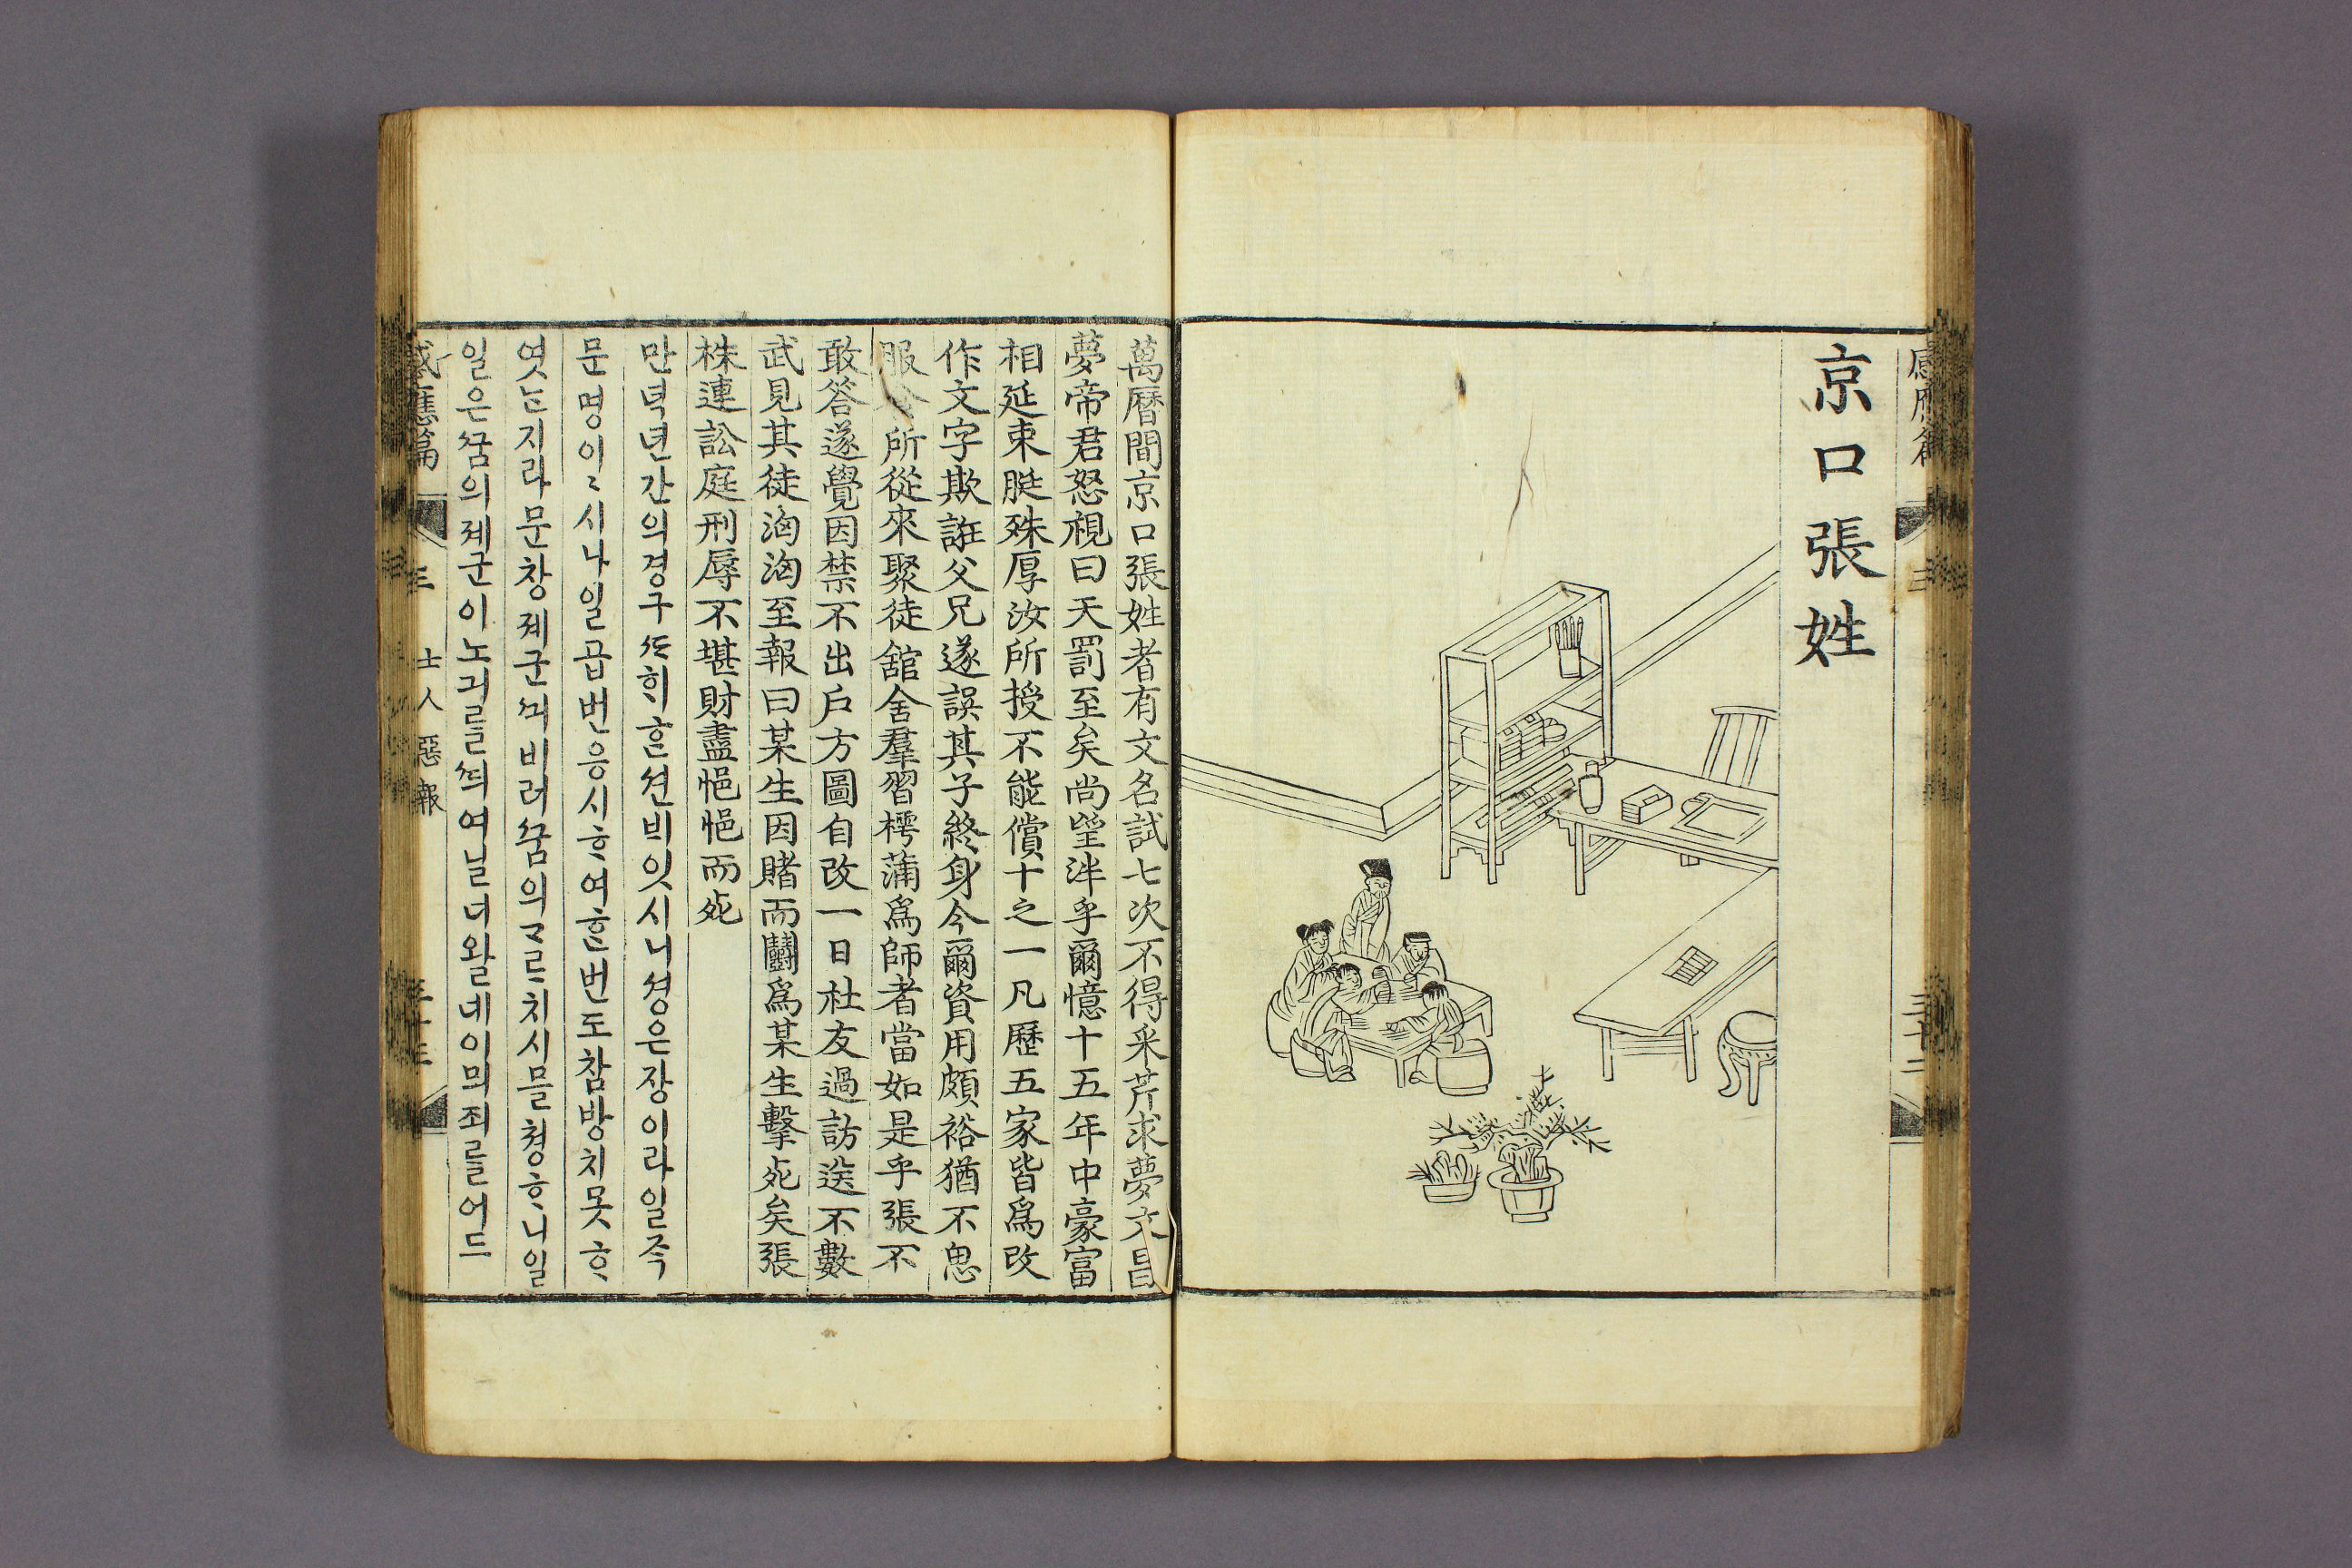 京口張姓
萬曆間京口張姓者有文名試七次不得采芹求夢文昌
夢帝君怒視曰天罰至矣尚望泮乎爾憶十五年中豪富
相延束脡殊厚汝所授不能償十之一凡歷五家皆爲改
作文字欺誑父兄遂誤其子終身今爾資用頗裕猶不思
服 所從來聚徒舘舍羣習樗蒲爲師者當如是乎張不
敢答遂覺因禁不出戶方圖自改一日社友過訪送不數
武見其徒洶洶至報曰某生因賭而鬪爲某生擊死矣張
株連訟庭刑辱不堪財盡悒悒而死
만녁년간의경구ᄯᅡ희ᄒᆞᆫ션ᄇᆡ잇시니셩은쟝이라일즉
문명이ᄭᆞ시나일곱번응시ᄒᆞ여ᄒᆞᆫ번도참방치못ᄒᆞ
엿ᄂᆞᆫ지라문창졔군ᄭᅴ비러ᄭᅮᆷ의ᄀᆞᄅᆞ치시믈쳥ᄒᆞ니일
일은ᄭᅮᆷ의졔군이노긔를ᄯᅴ여닐너왈네이믜죄를어드
感應篇 三 士人惡報 三十三